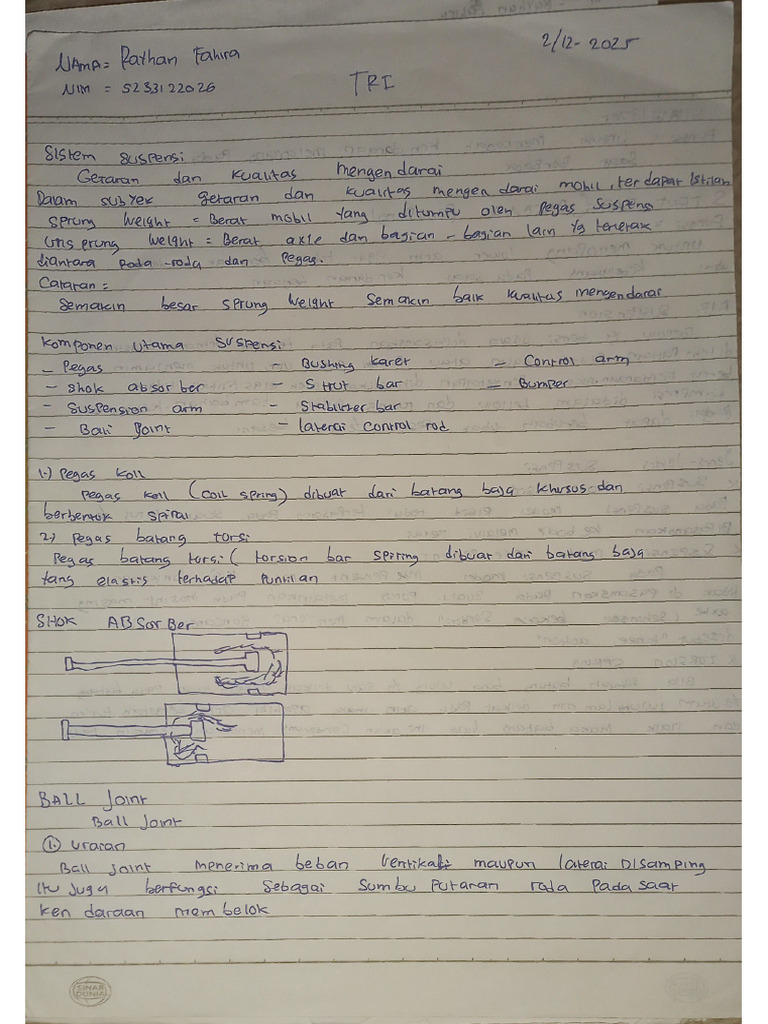 Nama = Raihan Fahira
2/12-2025
NIM = 5233122026
TRI
Sistem suspensi
Getaran dan kualitas mengendarai
Dalam subyek getaran dan kualitas mengendarai mobil, terdapat Istilah
sprung weight = Berat mobil yang ditumpu oleh pegas suspens
Unsprung weight = Berat axle dan bagian-bagian lain yg terletak
diantara roda-roda dan pegas.
Catatan =
Semakin besar sprung weight semakin baik kualitas mengendarai
Komponen utama suspensi
- Pegas - Bushing karet - Control arm
- shok absorber - Strut bar - Bumper
- Suspension arm - Stabilizer bar
- Ball Joint - lateral control rod
1.) Pegas koil
Pegas koil (coil spring) dibuat dari batang baja khusus dan
berbentuk spiral
2.) Pegas batang torsi
Pegas batang torsi (torsion bar spring dibuat dari batang baja
yang elastis terhadap puntiran
SHOK ABSorBer
BALL Joint
Ball Joint
1. uraian
Ball joint menerima beban vertikal maupun lateral Disamping
itu juga berfungsi sebagai sumbu putaran roda pada saat
kendaraan membelok
SINAR
DUNIA